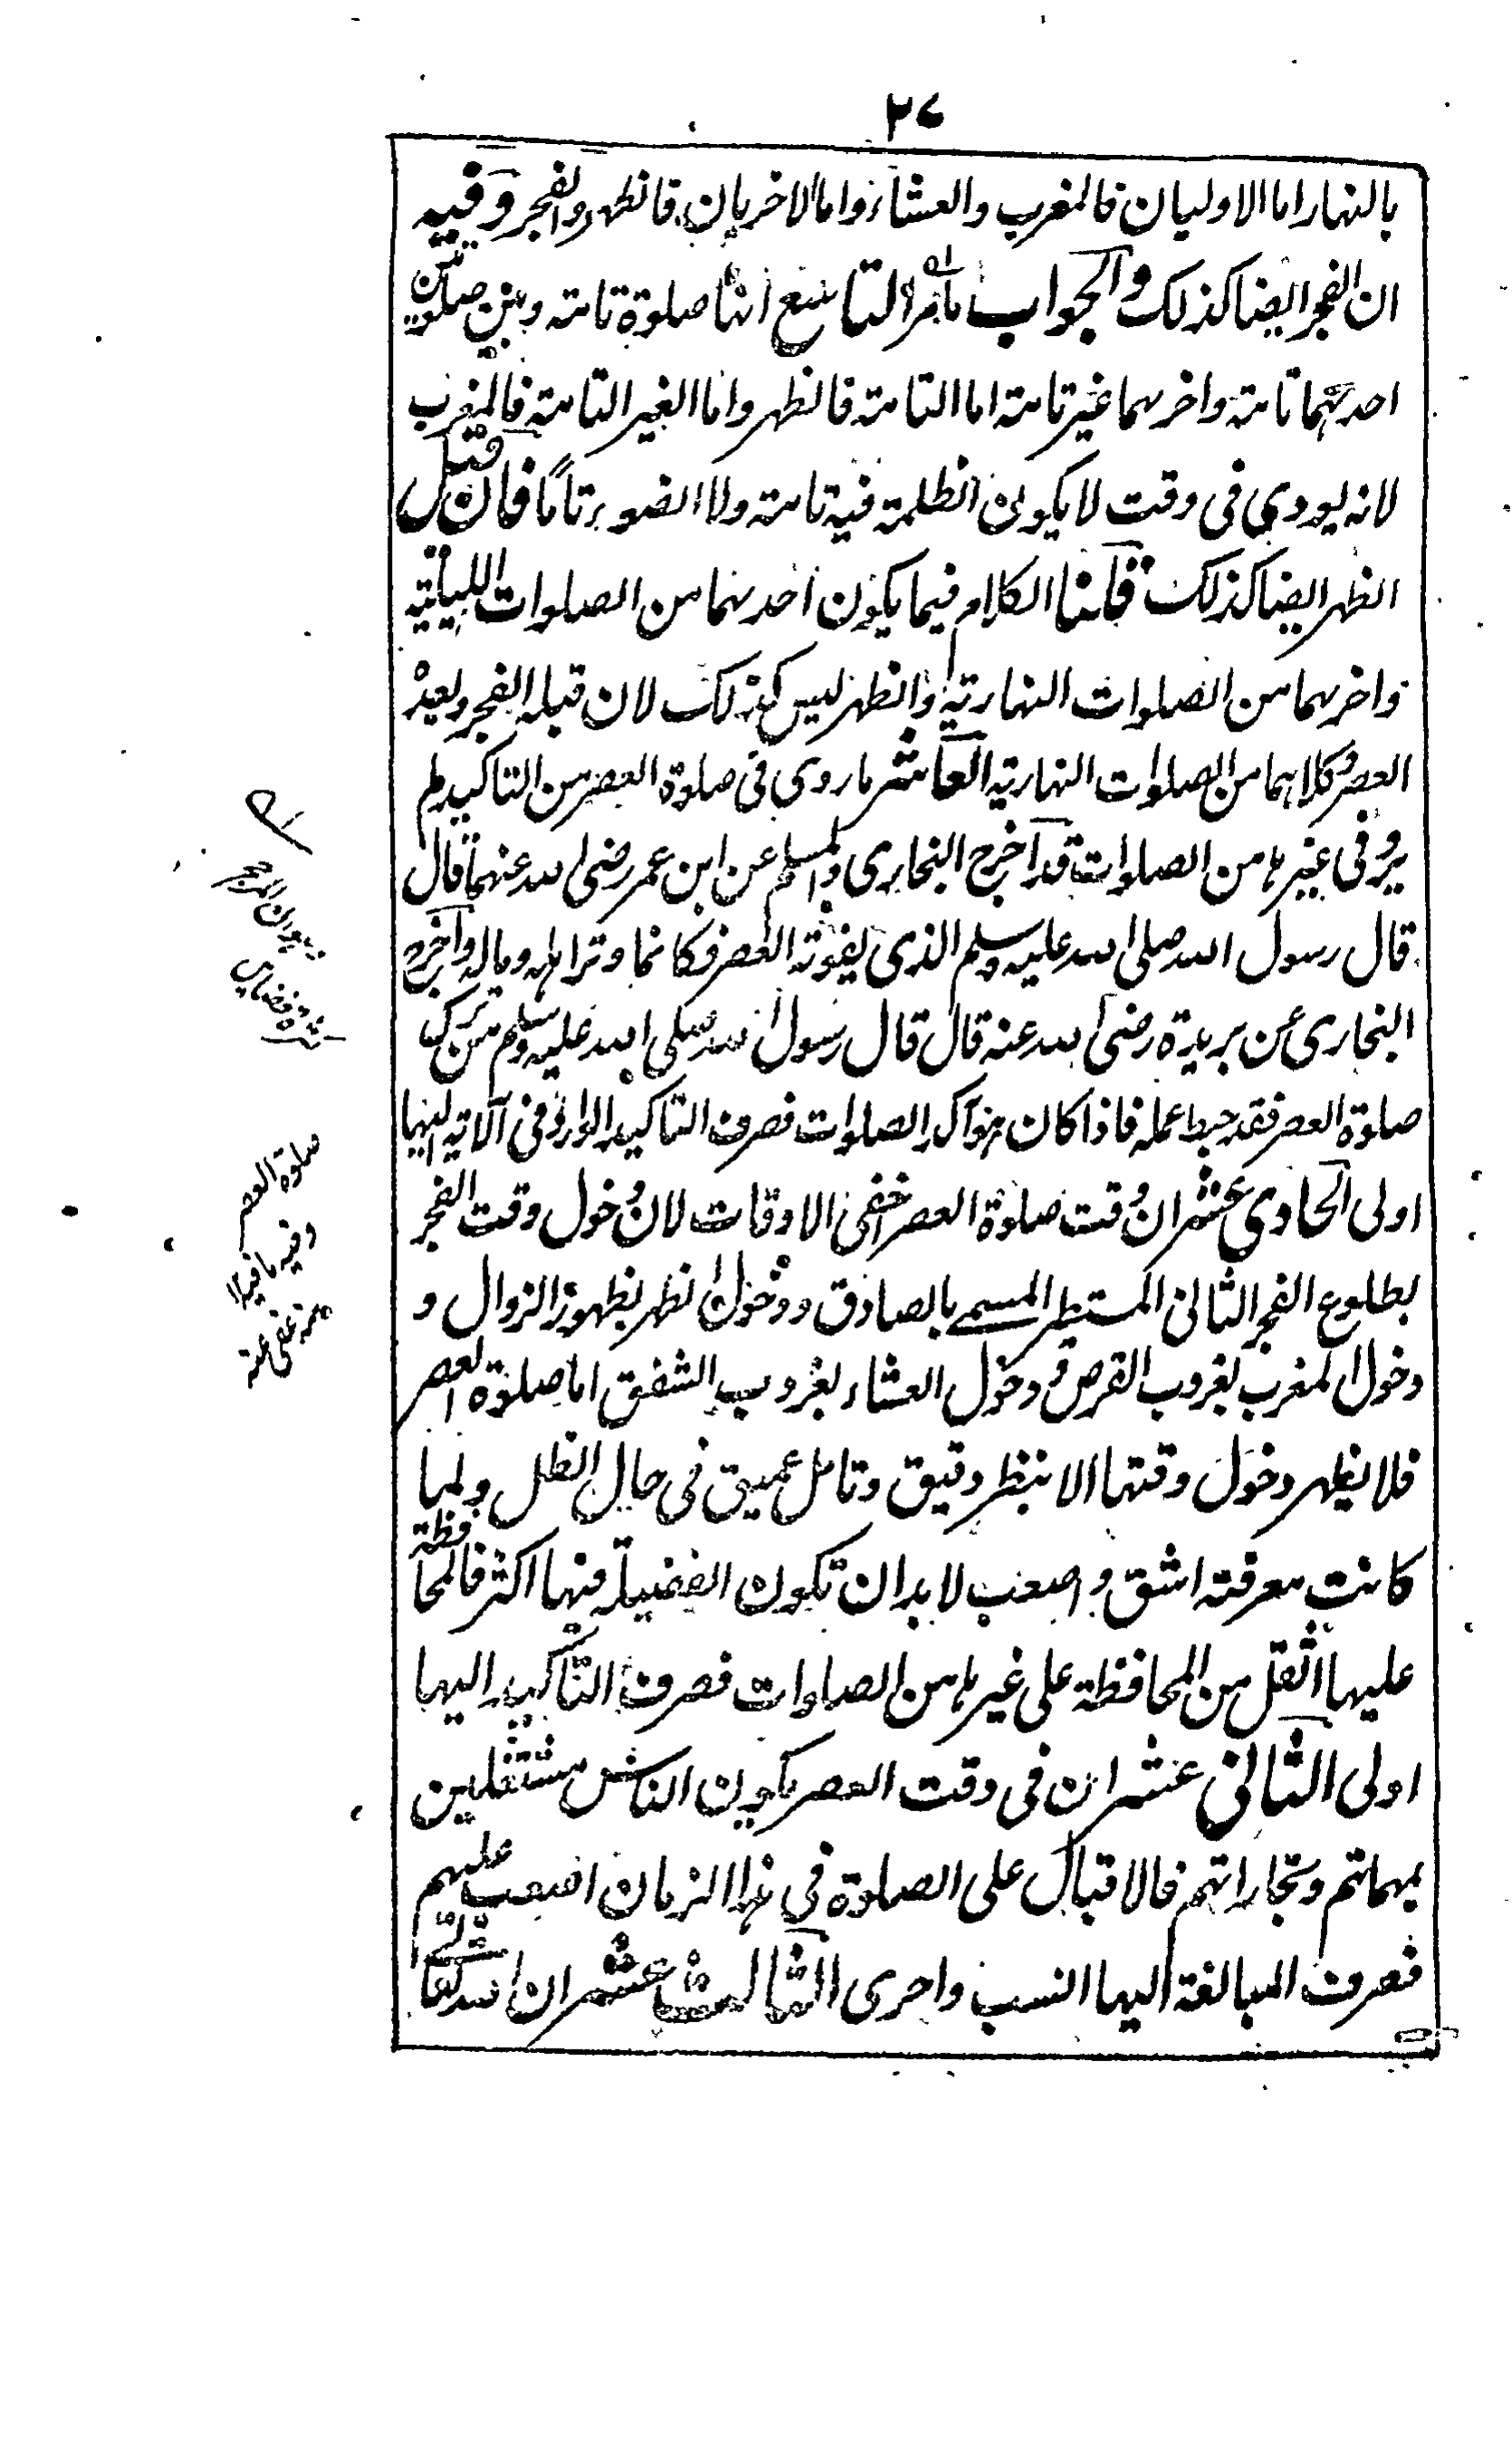 ٢٧
بالنهار اما الاوليان فالمغرب والعشاء واما الاخريان فالظهر والفجر وفيه
ان الفجر ايضا كذلك والجواب ما مر التاسع انها صلوة تامة وبين صلوتين
احدهما تامة واخرهما غير تامة اما التامة فالظهر واما الغير التامة فالمغرب
لانه يودي فى وقت لا يكون الظلمة فيه تامة ولا الضوء تامًا فان قيل
الظهر ايضا كذلك قلنا الكلام فيما يكون احدهما من الصلوات الليلية
واخرهما من الصلوات النهارية والظهر ليس كذلك لان قبله الفجر وبعده
العصر وكلاهما من الصلوات النهارية العاشر ما روى فى صلوة العصر من التاكيد لم
يرو فى غيرها من الصلوات قد اخرج البخارى والمسلم عن ابن عمر رضى الله عنهما قال
قال رسول الله صلى الله عليه وسلم الذى يفوته العصر فكانما وتر اهله وماله واخرج
البخارى عن بريدة رضى الله عنه قال قال رسول الله صلى الله عليه وسلم من ترك
صلوة العصر فقد حبط عمله فاذا كان هو آكد الصلوات فصرف التاكيد الوارد فى الآية اليها
اولى الحادي عشر ان وقت صلوة العصر اخفى الاوقات لان دخول وقت الفجر
بطلوع الفجر الثانى المستطير المسمى بالصادق ودخول الظهر بظهور الزوال و
دخول المغرب بغروب القرص ودخول العشاء بغروب الشفق اما صلوة العصر
فلا يظهر دخول وقتها الا بنظر دقيق وتامل عميق فى حال الظل ولما
كانت معرفته اشق واصعب لا بد ان تكون الفضيلة فيها اكثر فالمحافظة
عليها اثقل من المحافظة على غيرها من الصلوات فصرف التاكيد اليها
اولى الثانى عشر ان فى وقت العصر يكون الناس مشتغلين
بمهماتهم وتجاراتهم فالاقبال على الصلوة فى هذا الزمان اصعب عليهم
فصرف المبالغة اليها انسب واحرى الثالث عشر ان الله تعالى
صلوة العصر
وفيه ما فيه
منه عفى عنه